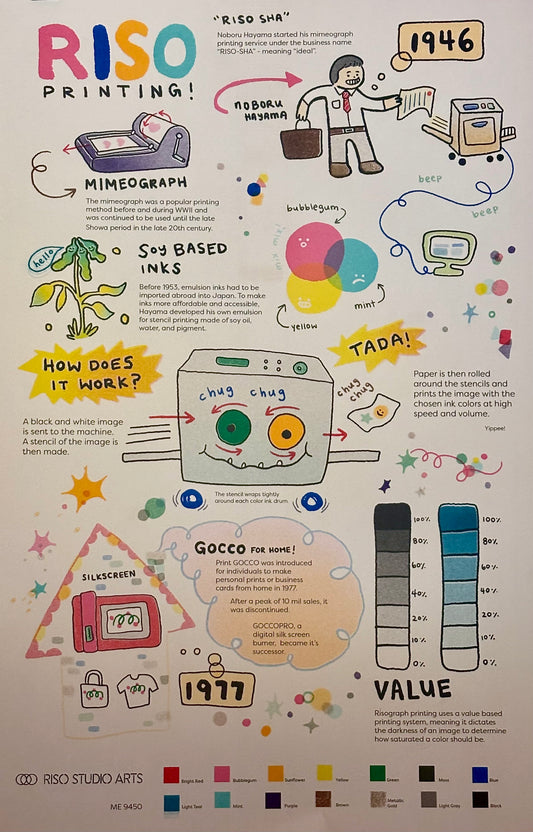 RISO
PRINTING!
"RISO SHA"
Noboru Hayama started his mimeograph
printing service under the business name
"RISO-SHA" - meaning "ideal".
1946
NOBORU
HAYAMA
MIMEOGRAPH
The mimeograph was a popular printing
method before and during WWII and
was continued to be used until the late
Showa period in the late 20th century.
beep
beep
bubblegum
mix mix!
mint
yellow
hello
SOY BASED
INKS
Before 1953, emulsion inks had to be
imported abroad into Japan. To make
inks more affordable and accessible,
Hayama developed his own emulsion
for stencil printing made of soy oil,
water, and pigment.
HOW DOES
IT WORK?
A black and white image
is sent to the machine.
A stencil of the image is
then made.
chug chug
The stencil wraps tightly
around each color ink drum
TADA!
chug
chug
Paper is then rolled
around the stencils and
prints the image with the
chosen ink colors at high
speed and volume.
Yippee!
SILKSCREEN
GOCCO FOR HOME!
Print GOCCO was introduced
for individuals to make
personal prints or business
cards from home in 1977.
After a peak of 10 mil sales, it
was discontinued.
GOCCOPRO, a
digital silk screen
burner, became it's
successor.
1977
100% 100%
80% 80%
60% 60%
40% 40%
20% 20%
10% 10%
0% 0%
VALUE
Risograph printing uses a value based
printing system, meaning it dictates
the darkness of an image to determine
how saturated a color should be.
RISO STUDIO ARTS
ME 9450
Bright Red Bubblegum Sunflower Yellow Green Moss Blue
Light Teal Mint Purple Brown Metallic Gold Light Gray Black